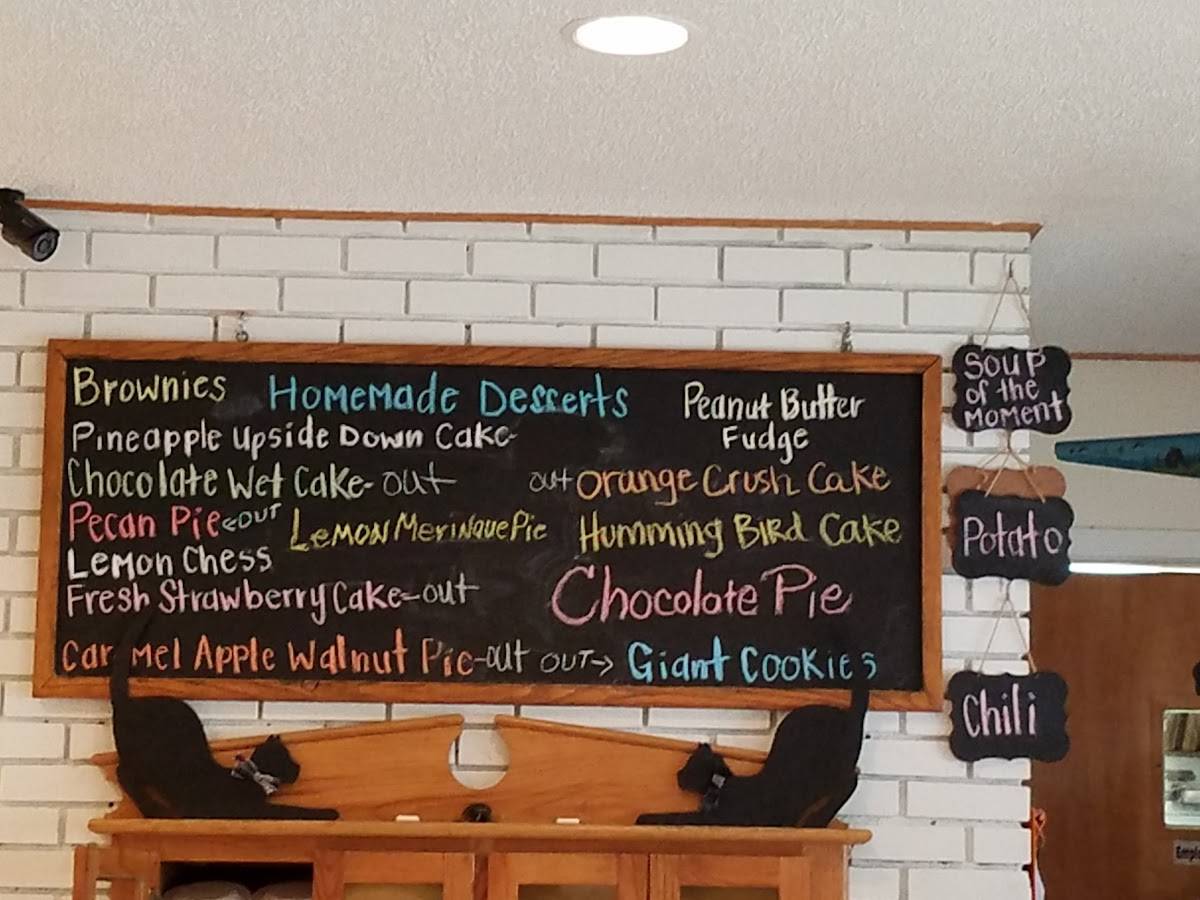 Brownies
Homemade Desserts
Peanut Butter
Fudge
Pineapple Upside Down Cake
Chocolate Wet Cake-out
out Orange Crush Cake
Pecan Pie <out
Lemon Merinque Pie
Humming Bird Cake
Lemon Chess
Fresh Strawberry Cake-out
Chocolate Pie
Caramel Apple Walnut Pie-out
out-> Giant Cookies
Soup
of the
Moment
Potato
Chili